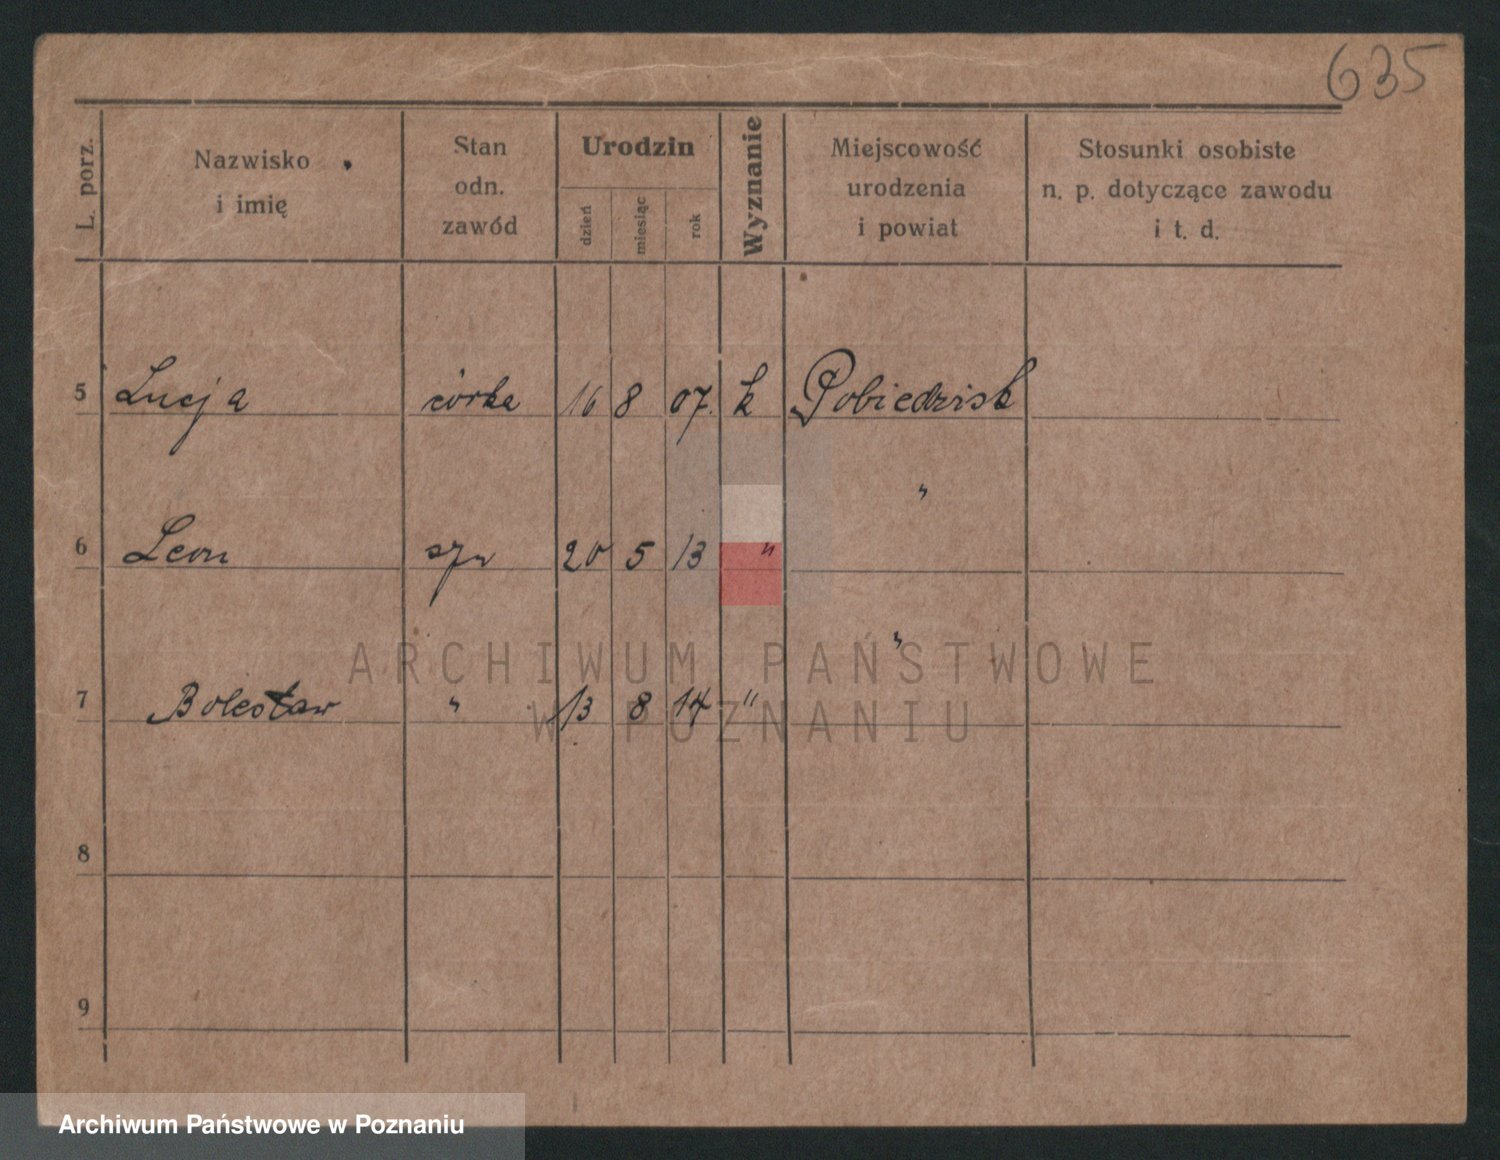 635
L. porz.
Nazwisko
i imię
Stan
odn.
zawód
Urodzin
dzień
miesiąc
rok
Wyznanie
Miejscowość
urodzenia
i powiat
Stosunki osobiste
n. p. dotyczące zawodu
i t. d.
5 Lucja córka 16 8 07. k Pobiedzisk
"
6 Leon syn 20 5 13 "
"
7 Bolesław " 13 8 14 "
8
9
ARCHIWUM PAŃSTWOWE
W POZNANIU
Archiwum Państwowe w Poznaniu